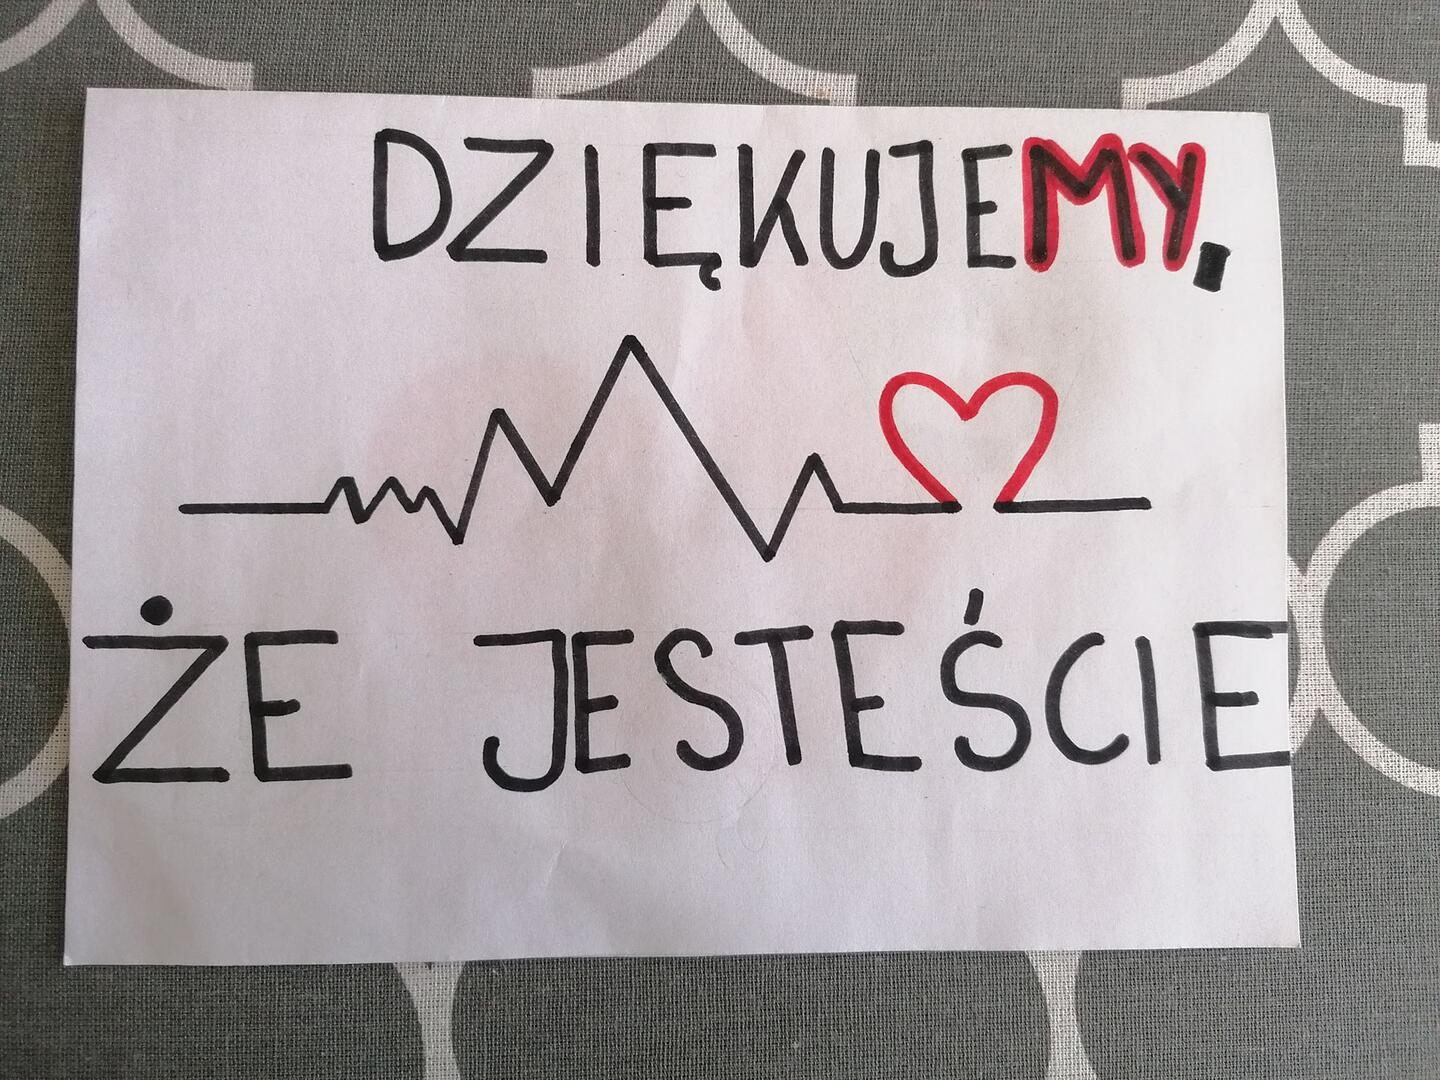 DZIĘKUJEMY,
ŻE JESTEŚCIE